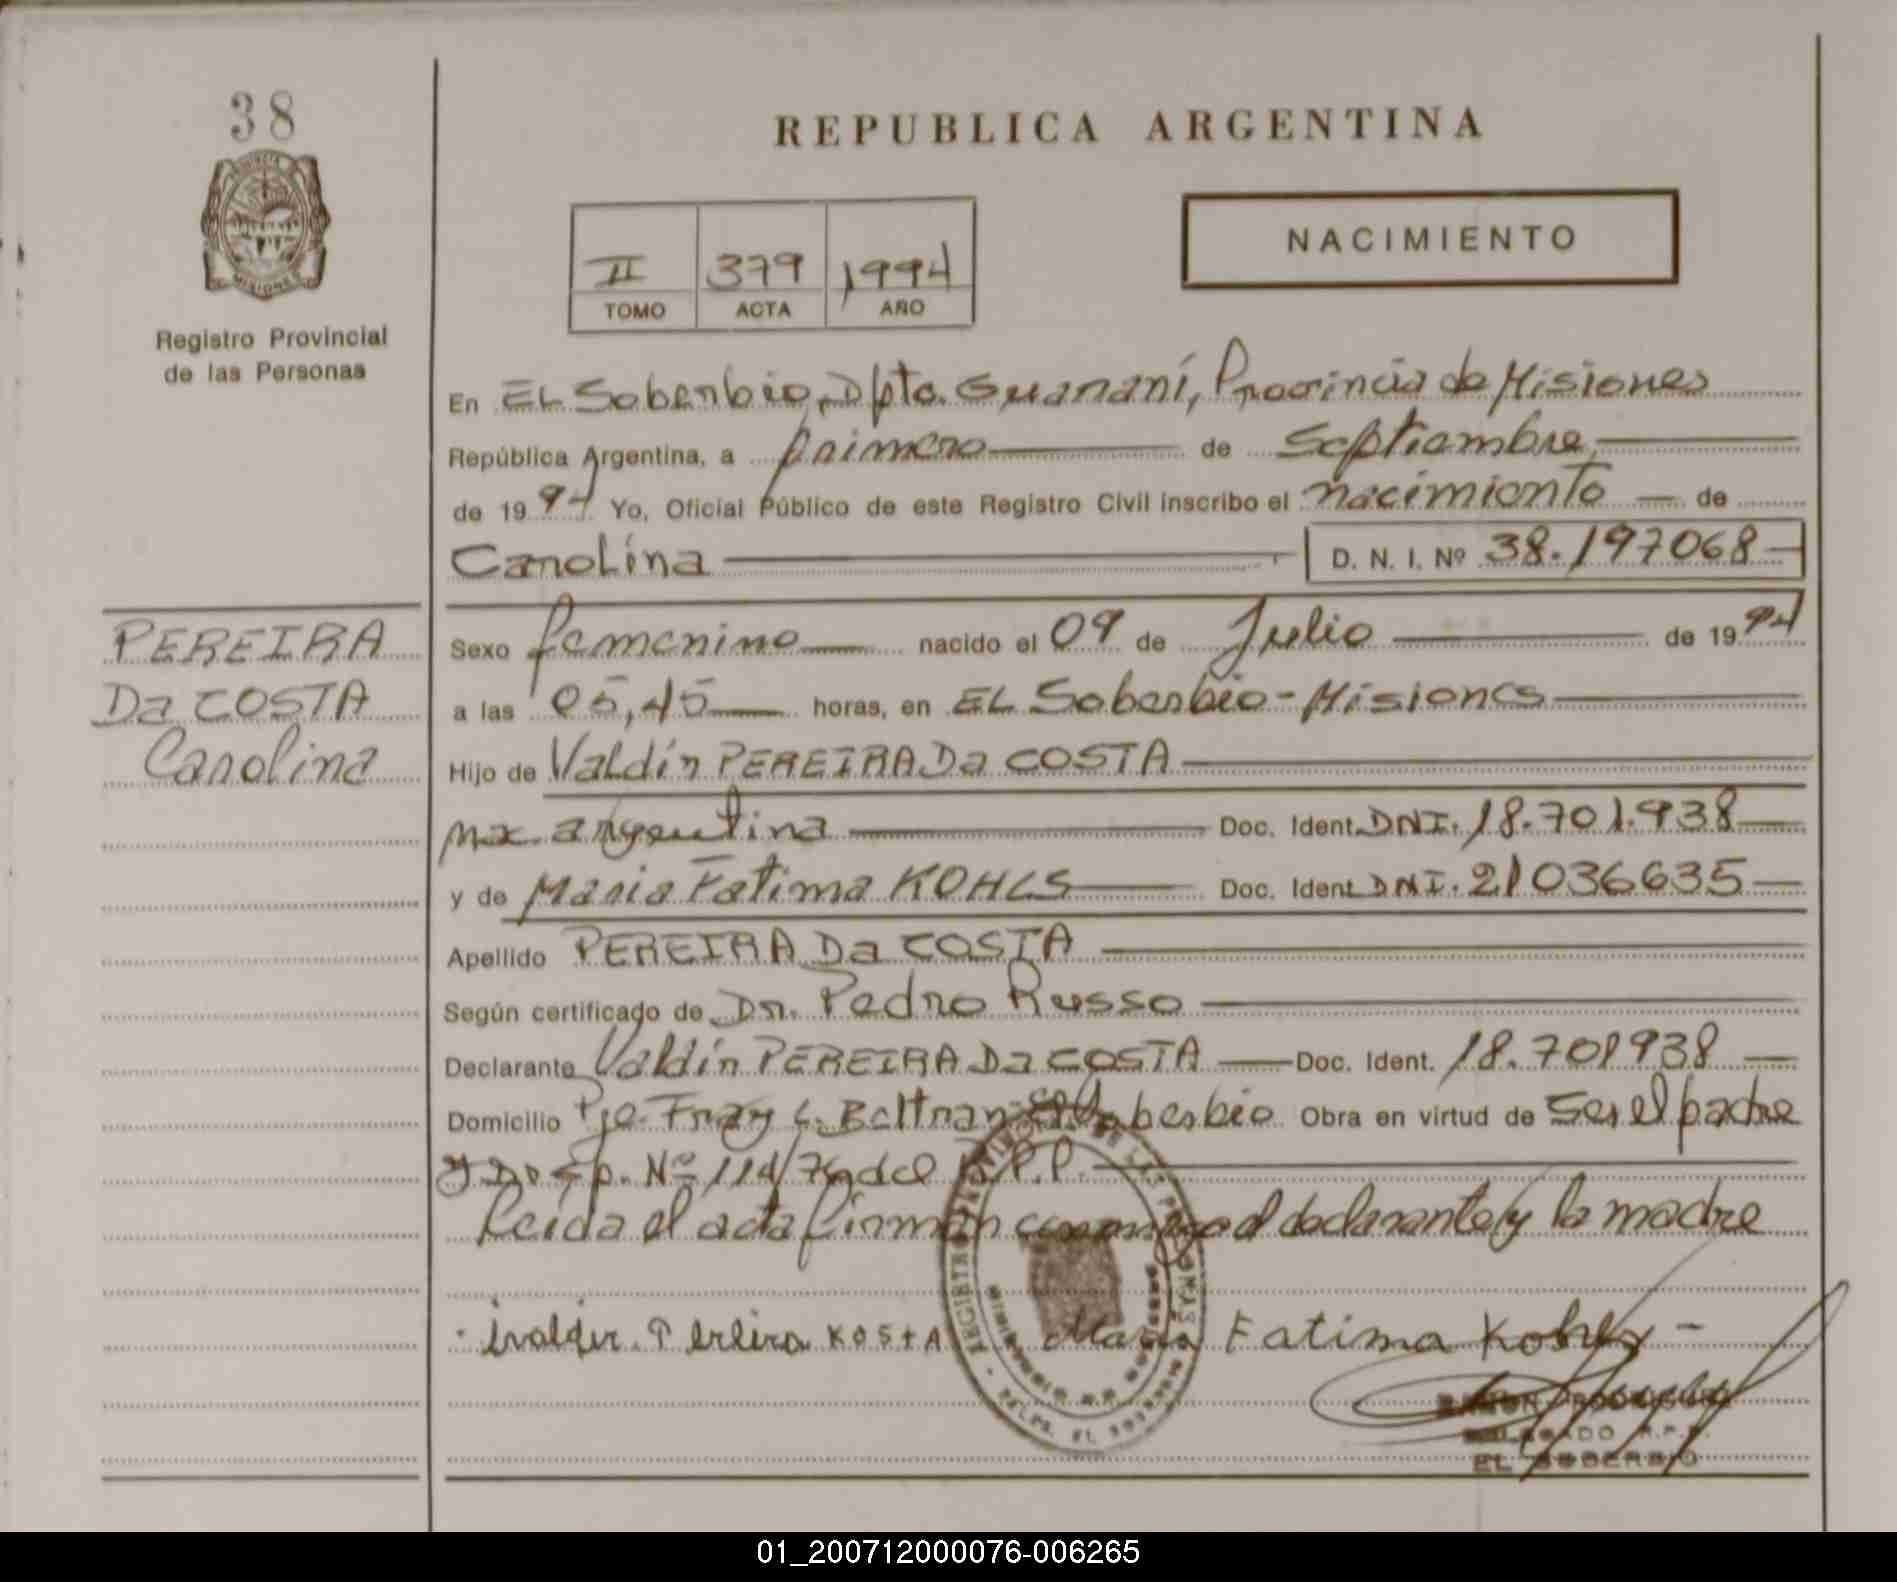 38
REPUBLICA ARGENTINA
NACIMIENTO
II 379 1994
TOMO ACTA AÑO
Registro Provincial
de las Personas
En EL Soberbio, Dpto. Guaraní, Provincia de Misiones
República Argentina, a primero de Septiembre
de 19 94 Yo, Oficial Público de este Registro Civil inscribo el nacimiento de
Carolina D. N. I. Nº 38.197068
PEREIRA
Da COSTA
Carolina
Sexo femenino nacido el 09 de Julio de 19 94
a las 05,45 horas, en EL Soberbio - Misiones
Hijo de Valdír PEREIRA Da COSTA
argentina Doc. Ident. DNI. 18.701.938
y de Maria Fatima KOHLS Doc. Ident DNI. 21036635
Apellido PEREIRA Da COSTA
Según certificado de Dr. Pedro Russo
Declarante Valdír PEREIRA Da COSTA Doc. Ident. 18.701938
Domicilio Pje. Fray L. Beltran - El Soberbio Obra en virtud de Ser el padre
y Disp. Nº 114/76 del R.P.P.
Leida el acta firman conmigo el declarante y la madre
Valdir. Pereira KOSTA Maria Fatima Kohls -
RAMON RODRIGUEZ
DELEGADO R.P.P.
EL SOBERBIO
01_200712000076-006265